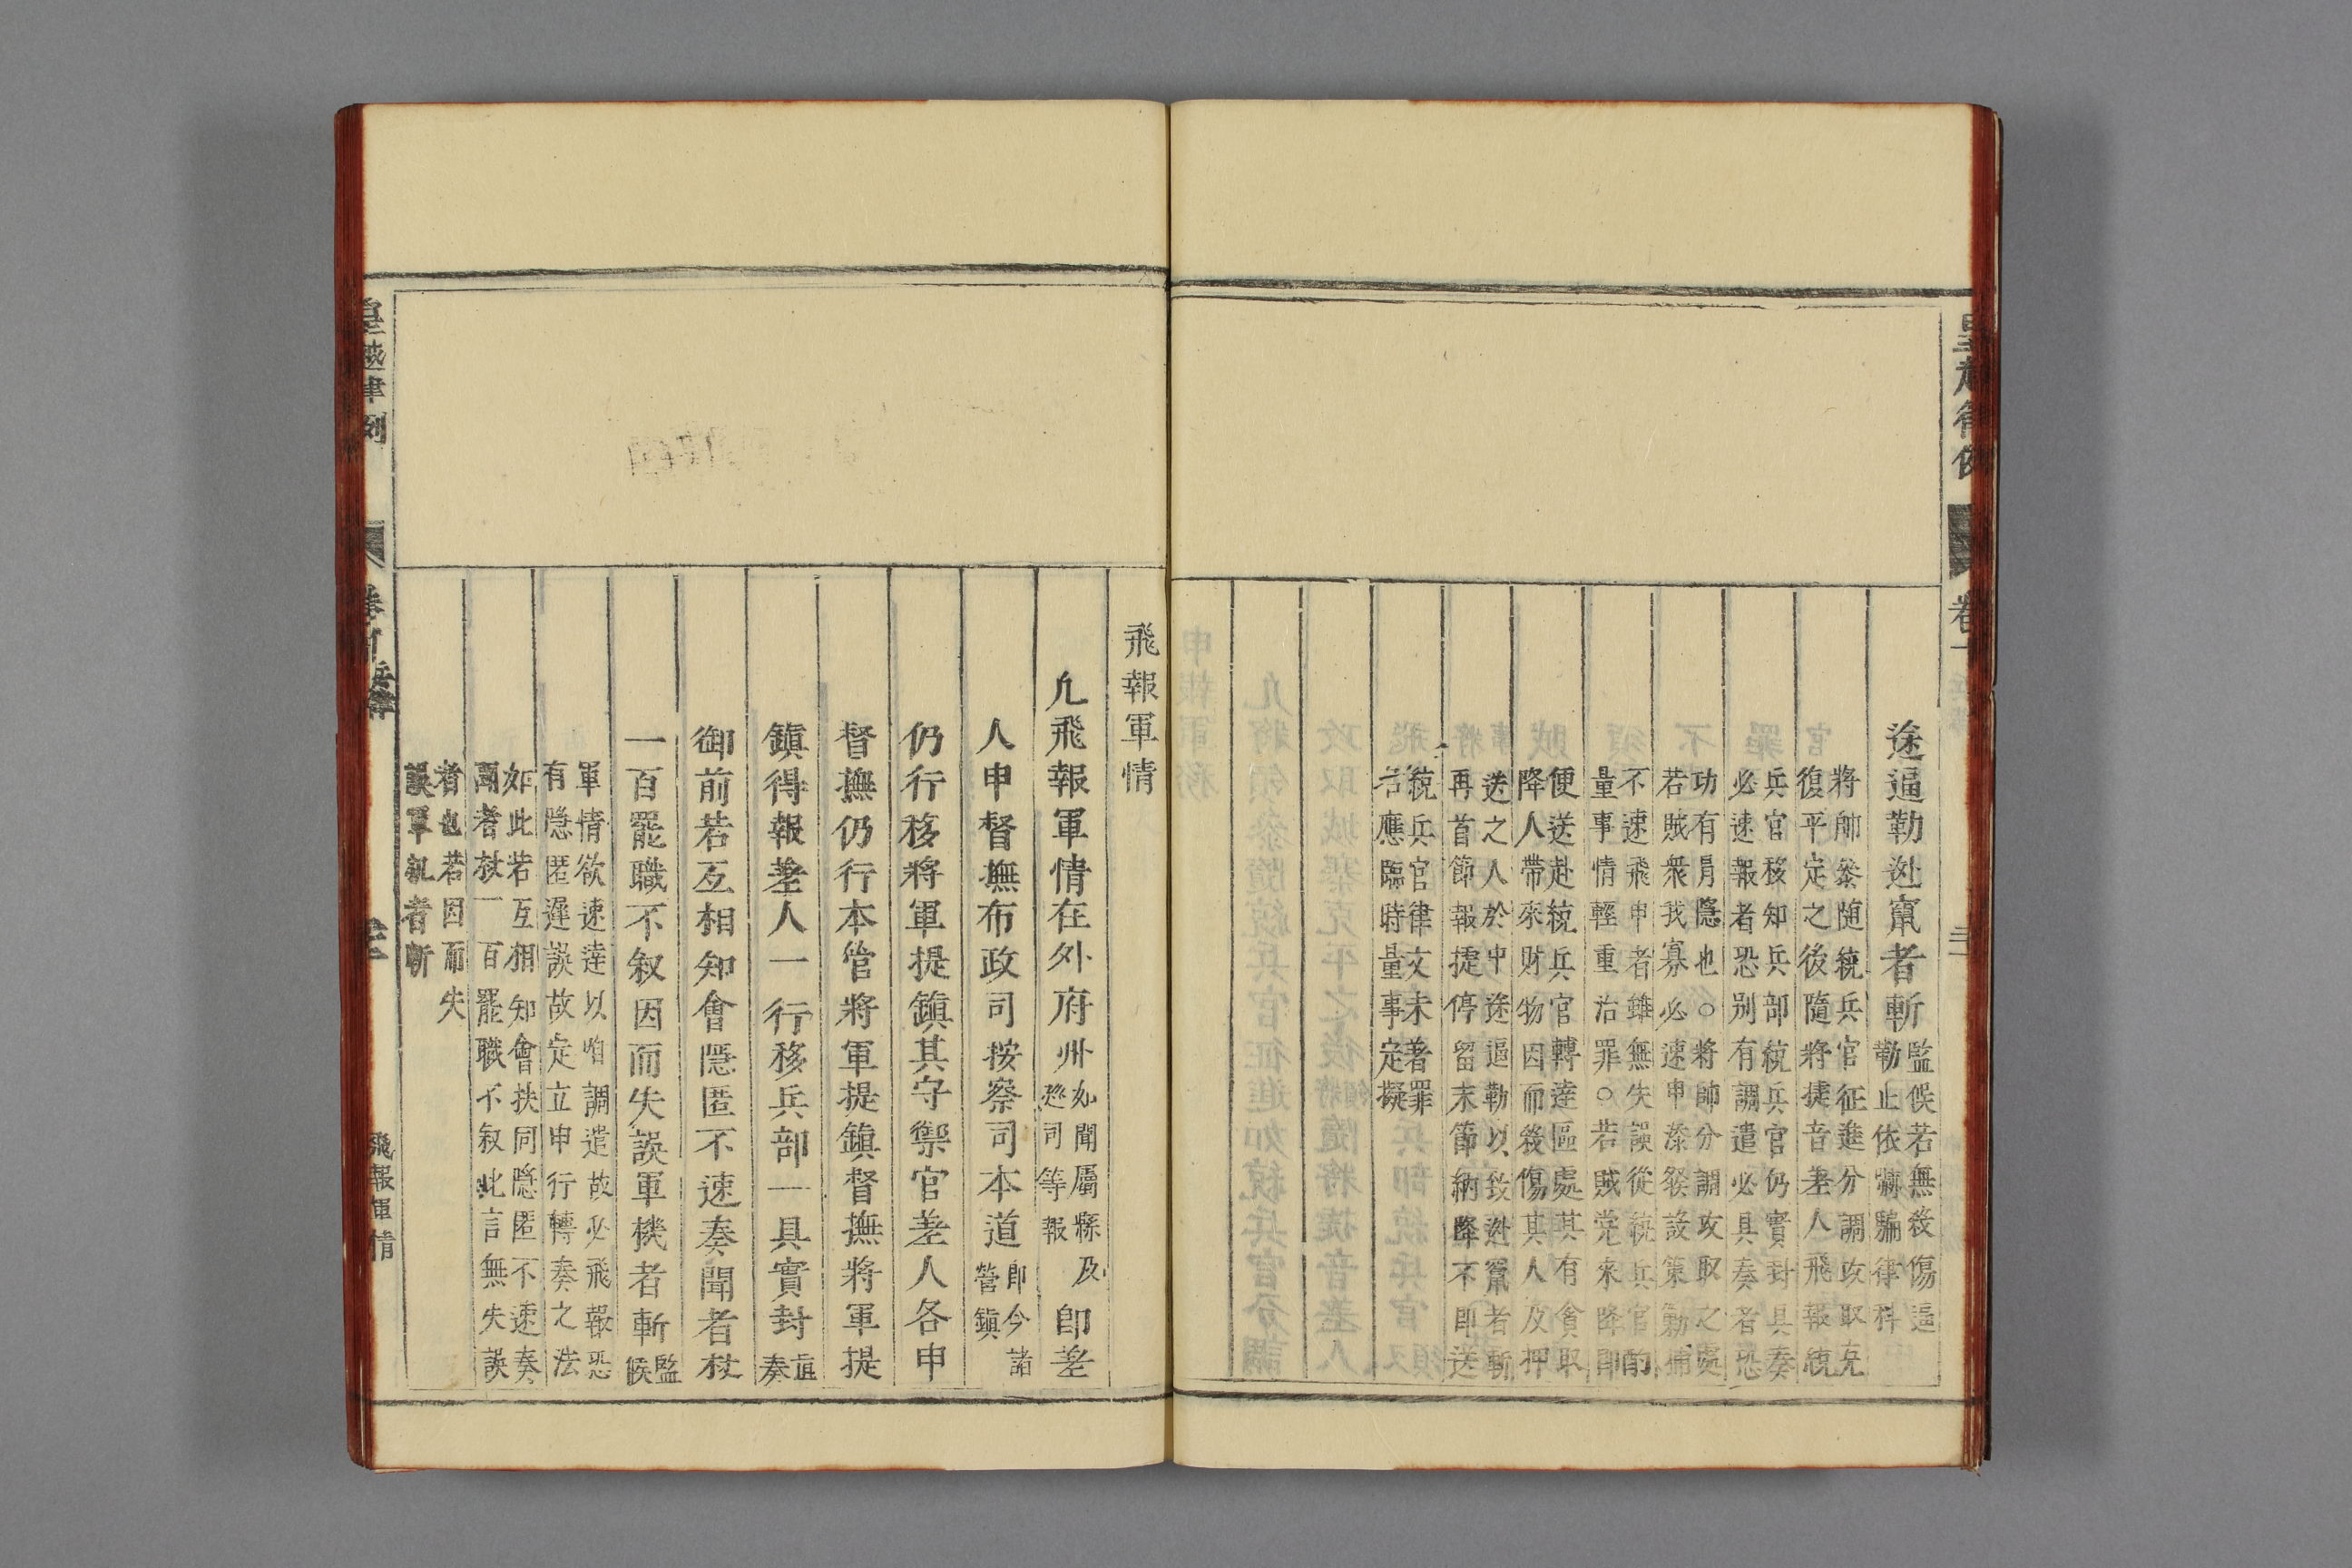 途逼勒迯竄者斬 監候若無殺傷逼
勒止依嚇騙律科
將帥叅随統兵官征進分調攻取克
復平定之後隨將捷音差人飛報統
兵官移知兵部統兵官仍實封具奏
必速報者恐别有調遣必具奏者恐
功有冐隐也○將帥分調攻取之處
若賊衆我寡必速申添發設策勦捕
不速飛申者雖無失誤從統兵官酌
量事情輕重治罪○若賊党來降即
便送赴統兵官轉達區處其有貪取
降人帶來财物因而殺傷其人及押
送之人於中途逼勒以致迯竄者斬
再首節報捷停留末節納降不即送
統兵官律文未著罪
名應臨時量事定擬
飛報軍情
凢飛報軍情在外府州 如聞属縣及
廵司等報 即差
人申督撫布政司按察司本道 即今諸
營鎮
仍行移將軍提鎮其守禦官差人各申
督撫仍行本管將軍提鎮督撫將軍提
鎮得報差人一行移兵部一具實封 直
奏
御前若互相知會隱匿不速奏聞者杖
一百罷職不叙因而失誤軍機者斬 監
候
軍情欲速達以咱調遣故必飛報恐
有隱匿遲誤故定立申行轉奏之法
如此若互相知會扶同隱匿不速奏
聞者杖一百罷職不叙此言無失誤
者也若因而失
誤軍机者斬
皇越律例
卷
飛報軍情